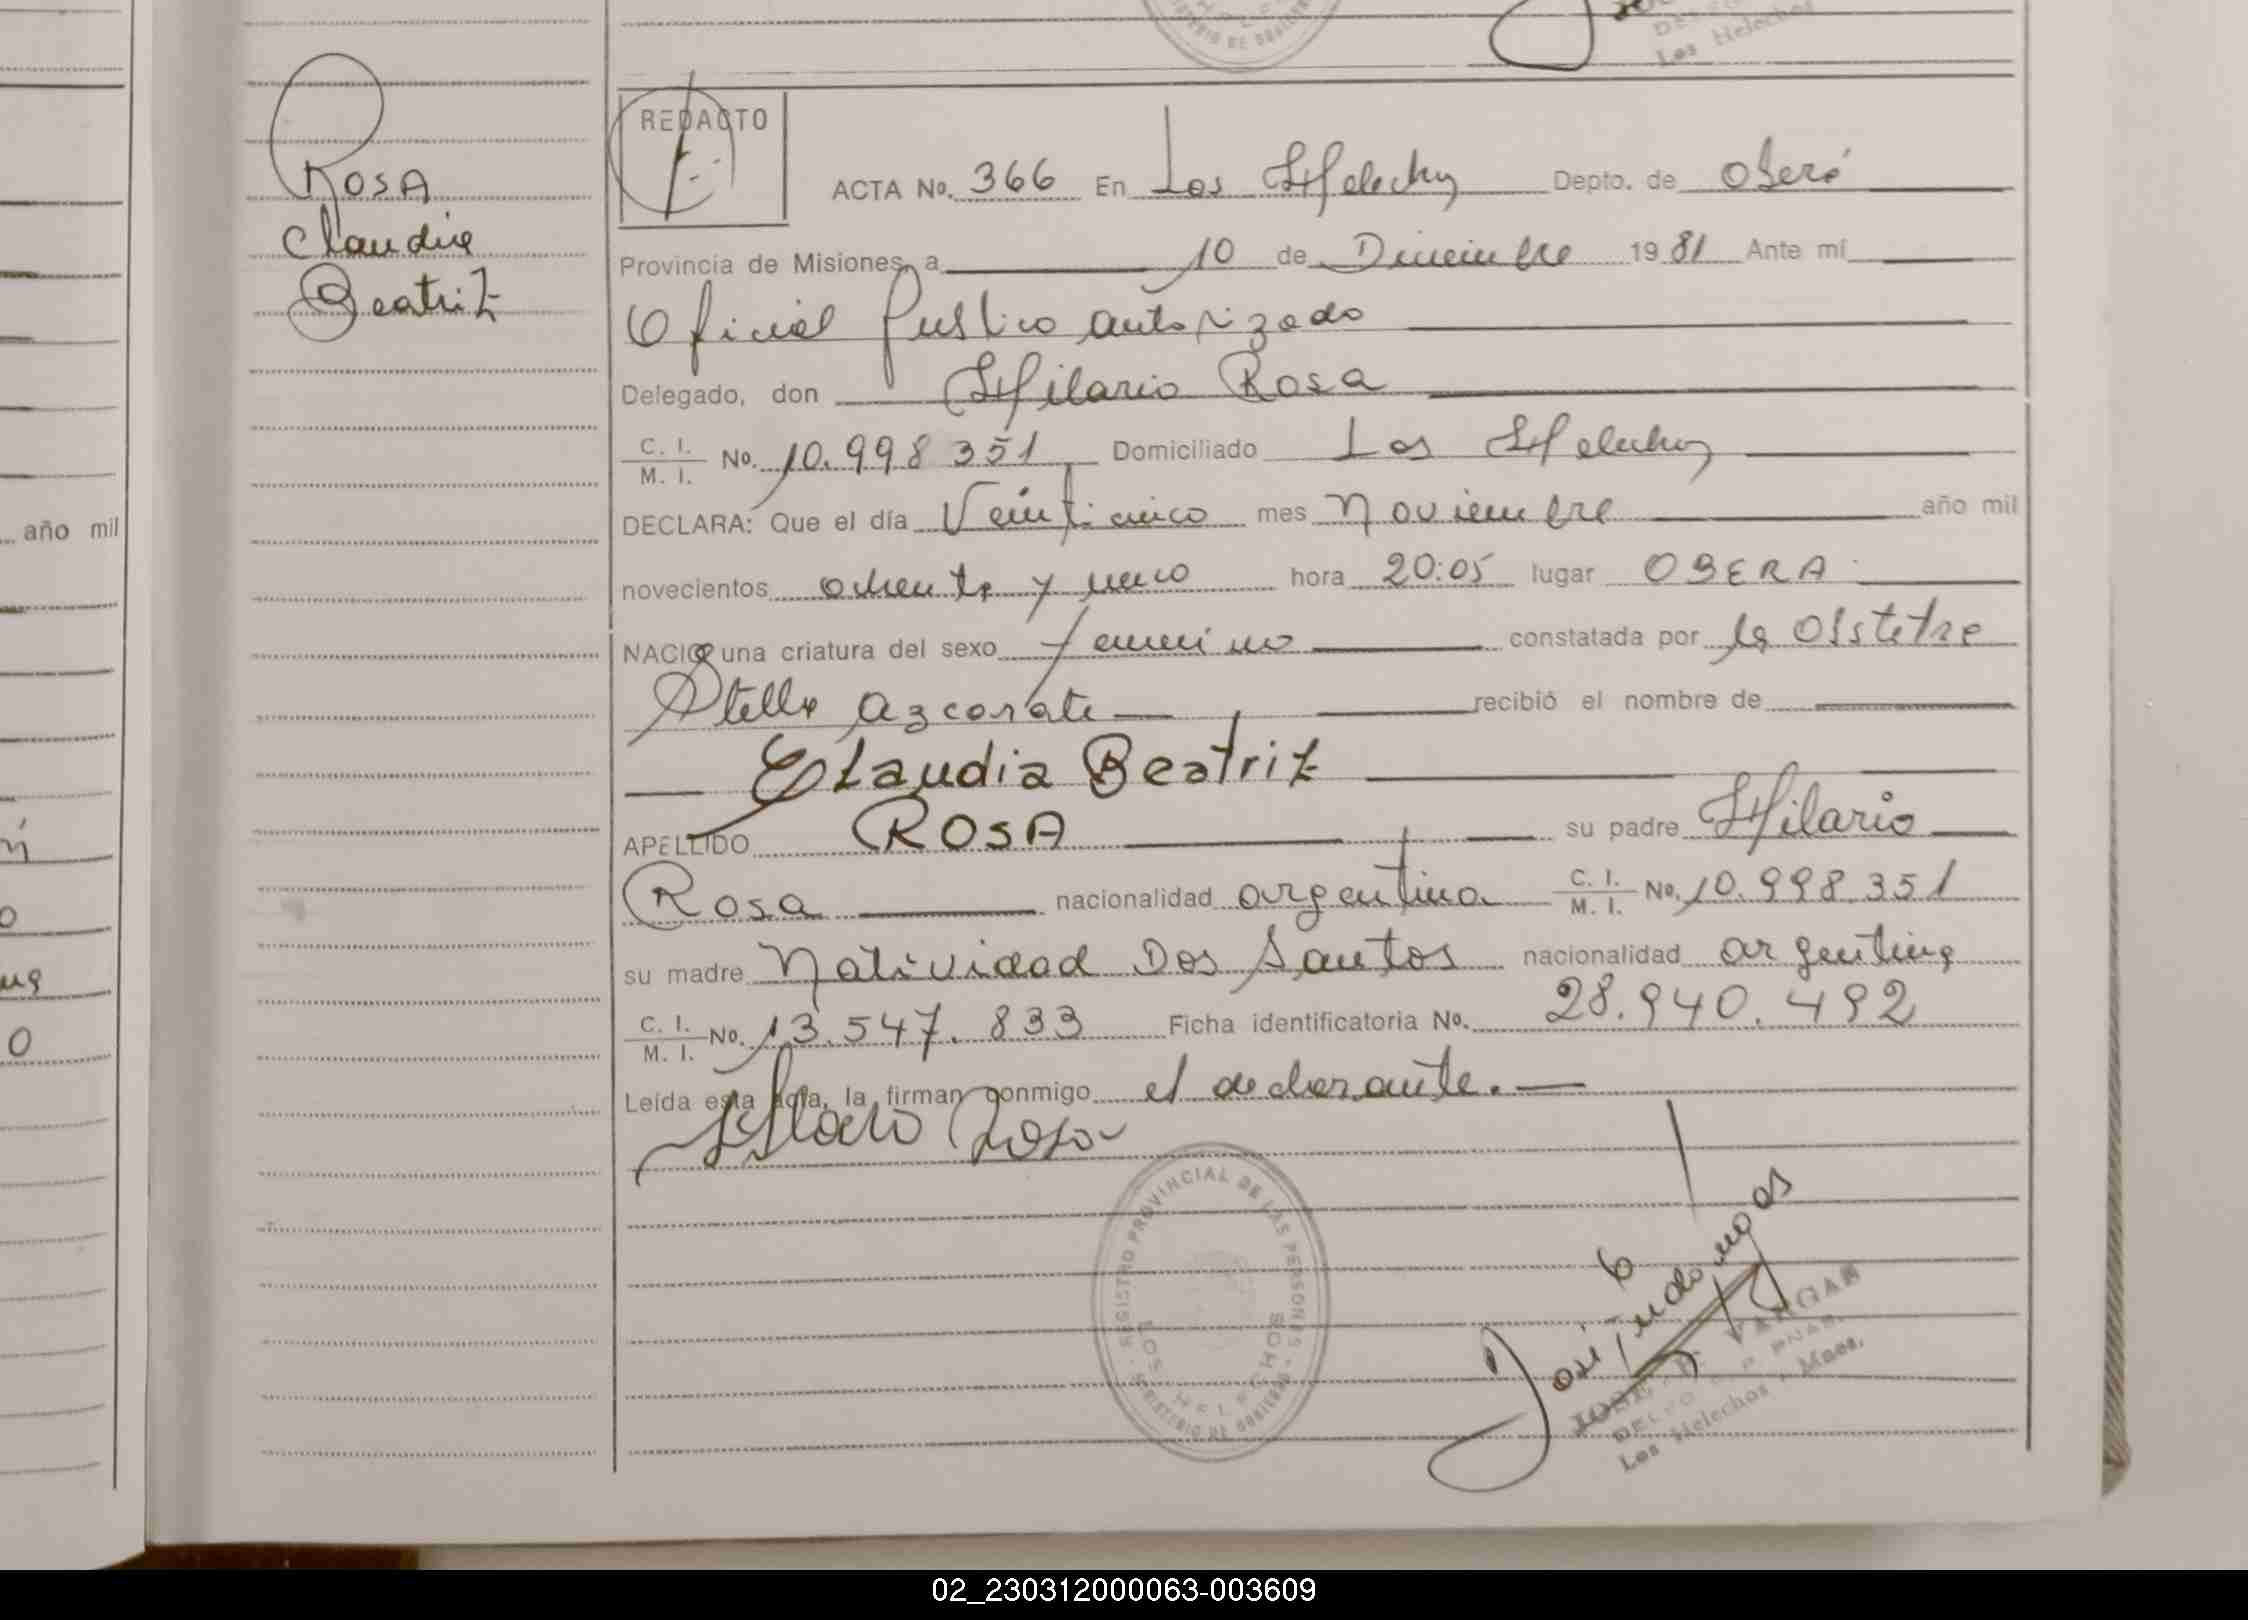 Los Helechos
año mil
ROSA
Claudia
Beatriz
REDACTO
ACTA No. 366 En Los Helechos Depto. de Oberá
Provincia de Misiones, a 10 de Diciembre 1981 Ante mí
Oficial Publico autorizado
Delegado, don Hilario Rosa
C. I.
M. I. No. 10.998.351 Domiciliado Los Helechos
DECLARA: Que el día Veinticinco mes Noviembre año mil
novecientos ochenta y uno hora 20:05 lugar OBERA
NACIO una criatura del sexo femenino constatada por la Obstetra
Stella Azcarate recibió el nombre de
Claudia Beatriz
APELLIDO ROSA su padre Hilario
Rosa nacionalidad argentina C. I.
M. I. No. 10.998.351
su madre Natividad Dos Santos nacionalidad argentina
C. I.
M. I. No. 13.547.833 Ficha identificatoria No. 28.940.492
Leída esta acta, la firman conmigo el declarante.
Rosa
REGISTRO PROVINCIAL DE LAS PERSONAS
MINISTERIO DE GOBIERNO
LOS HELECHOS
VARGAS
Los Helechos - Mnes.
02_230312000063-003609